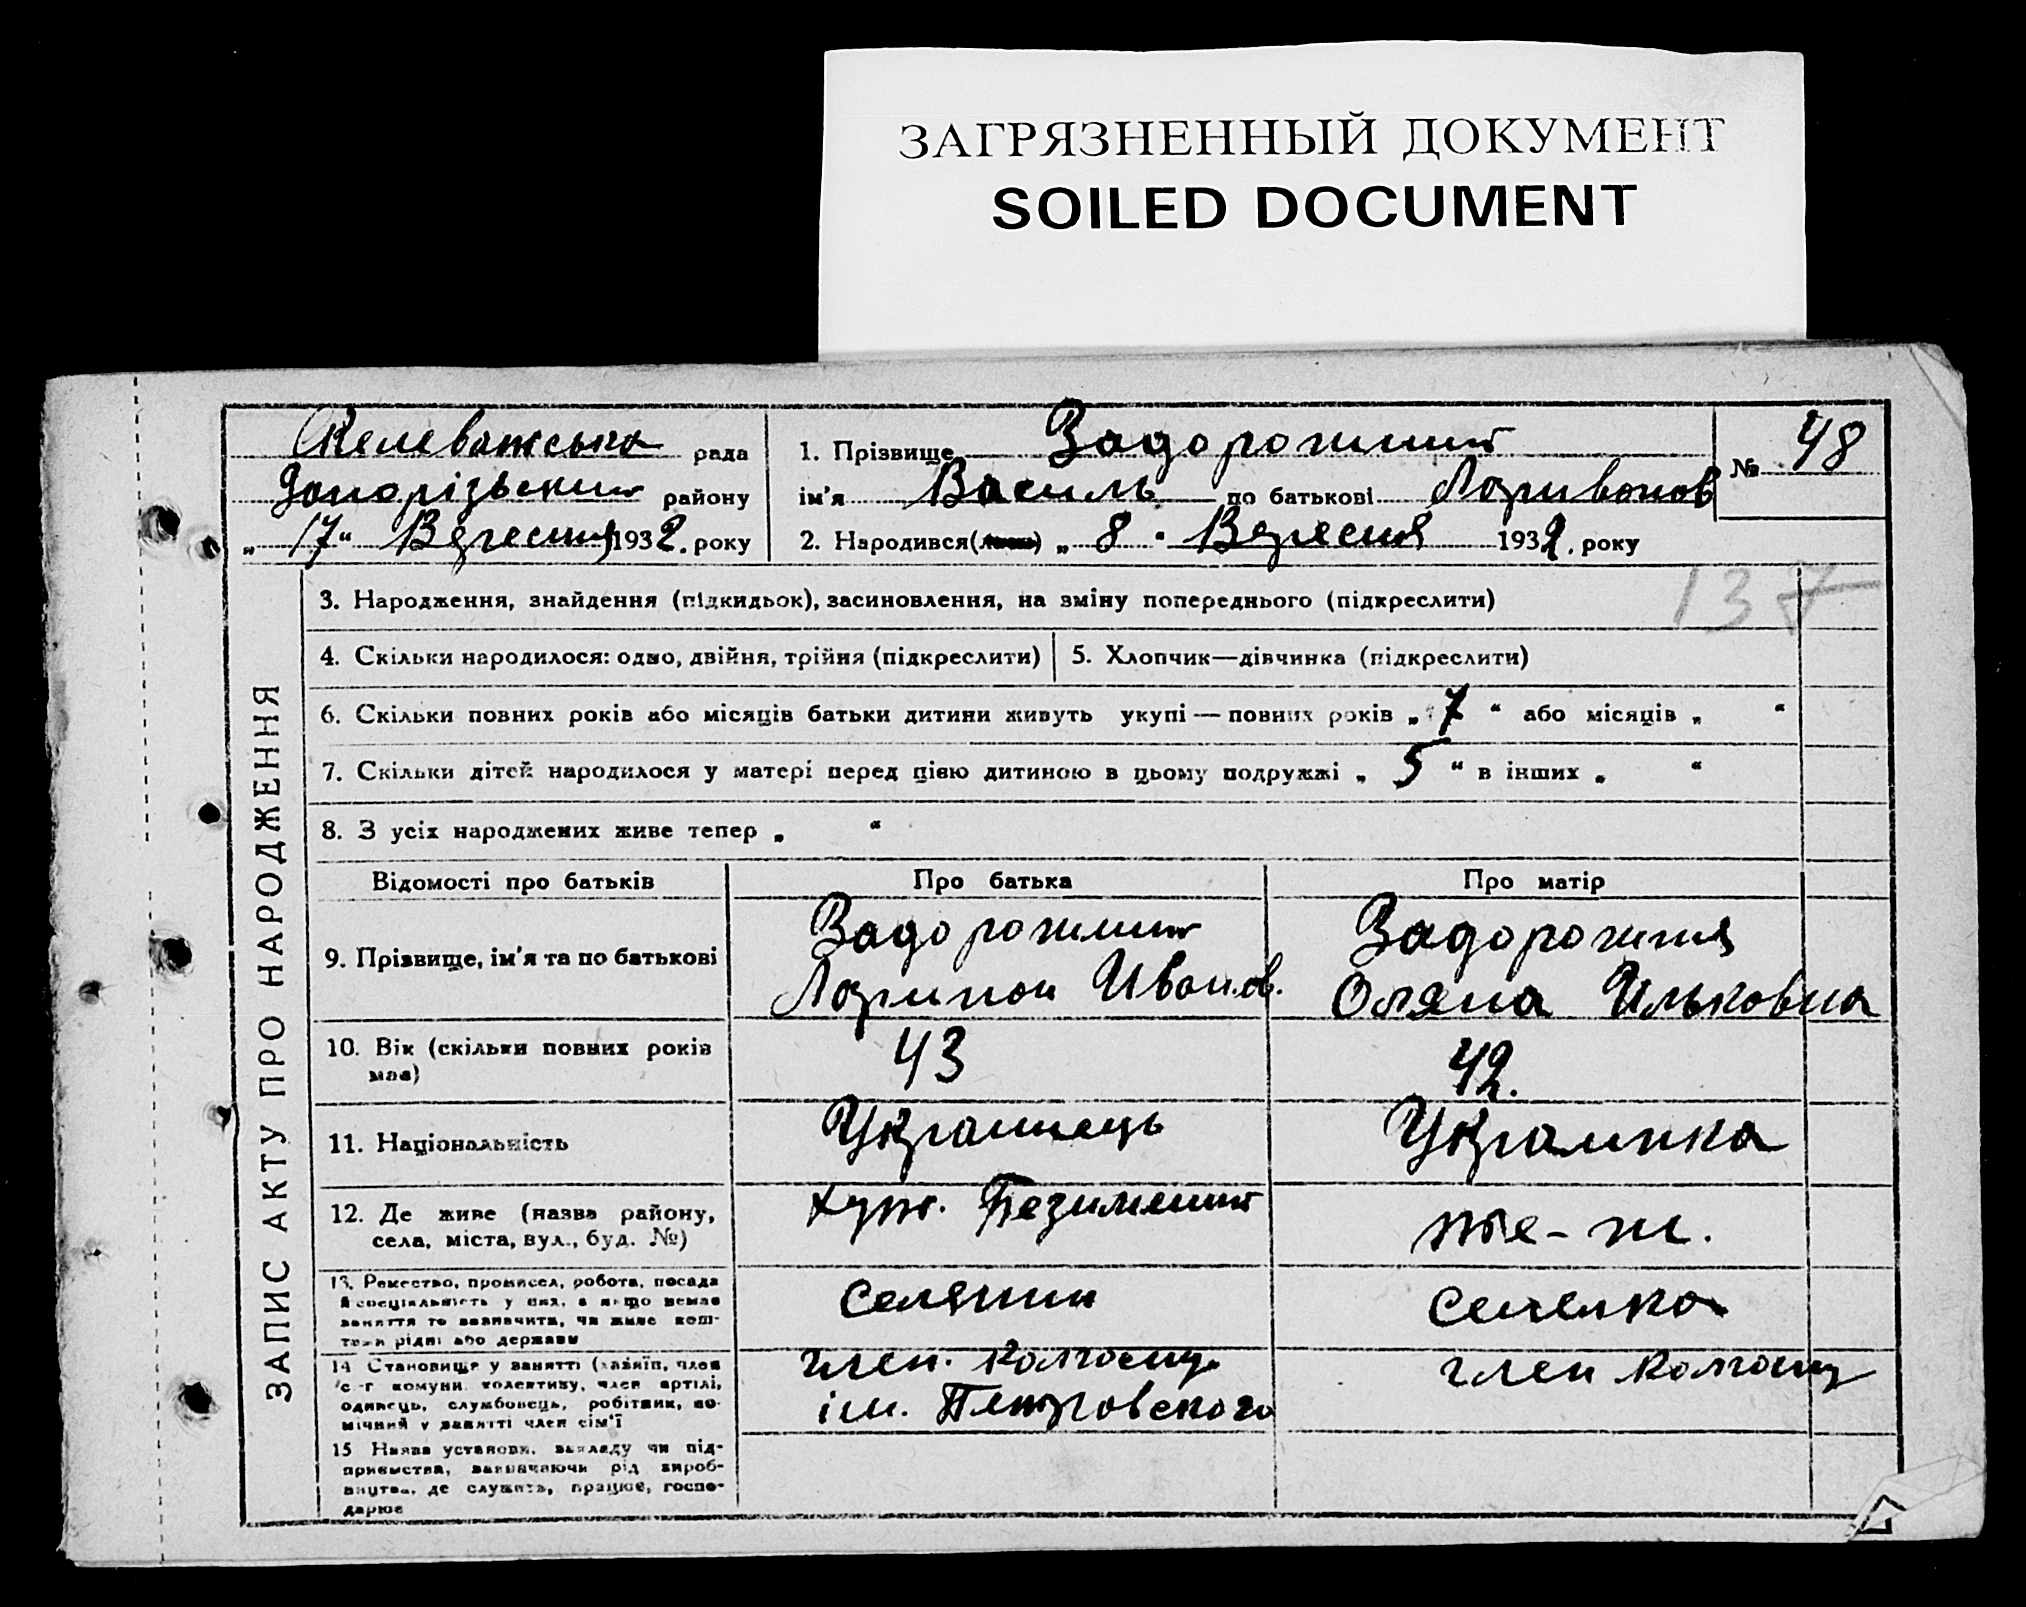 ЗАГРЯЗНЕННЫЙ ДОКУМЕНТ
SOILED DOCUMENT
Скелеватська рада
Запорізьский району
„ 17 “ Вересня 1932. року
1. Прізвище Задорожний
ім'я Василь по батькові Ларивонов
2. Народився „ 8 “ Вересня 1932. року
№ 48
137
ЗАПИС АКТУ ПРО НАРОДЖЕННЯ
3. Народження, знайдення (підкидьок), засиновлення, на зміну попереднього (підкреслити)
4. Скільки народилося: одно, двійня, трійня (підкреслити)
5. Хлопчик—дівчинка (підкреслити)
6. Скільки повних років або місяців батьки дитини живуть укупі — повних років „ 7 “ або місяців „ “
7. Скільки дітей народилося у матері перед цією дитиною в цьому подружжі „ 5 “ в інших „ “
8. З усіх народжених живе тепер „ “
Відомості про батьків
Про батька
Про матір
9. Прізвище, ім'я та по батькові
Задорожний
Ларипон Иванов.
Задорожня
Оляна Ильковна
10. Вік (скільки повних років
має)
43
42.
11. Національність
Украинець
Украинка
12. Де живе (назва району,
села, міста, вул., буд. №)
хут. Безименний
те-ж.
13. Ремество, промисел, робота, посада
й спеціяльність у них, а якщо немає
заняття то зазначити, чи живе кош-
том рідні або держави
Селянин
Селянка
14 Становище у занятті (хазяїн, член
с.-г комуни, колективу, член артілі,
одинець, службовець, робітник, по-
мічний у занятті член сім'ї
член. колгоспу
ім. Петровского
член колгоспу
15 Назва установи, закладу чи під-
приємства, зазначаючи рід вироб-
ництва, де служить, працює, госпо-
дарює